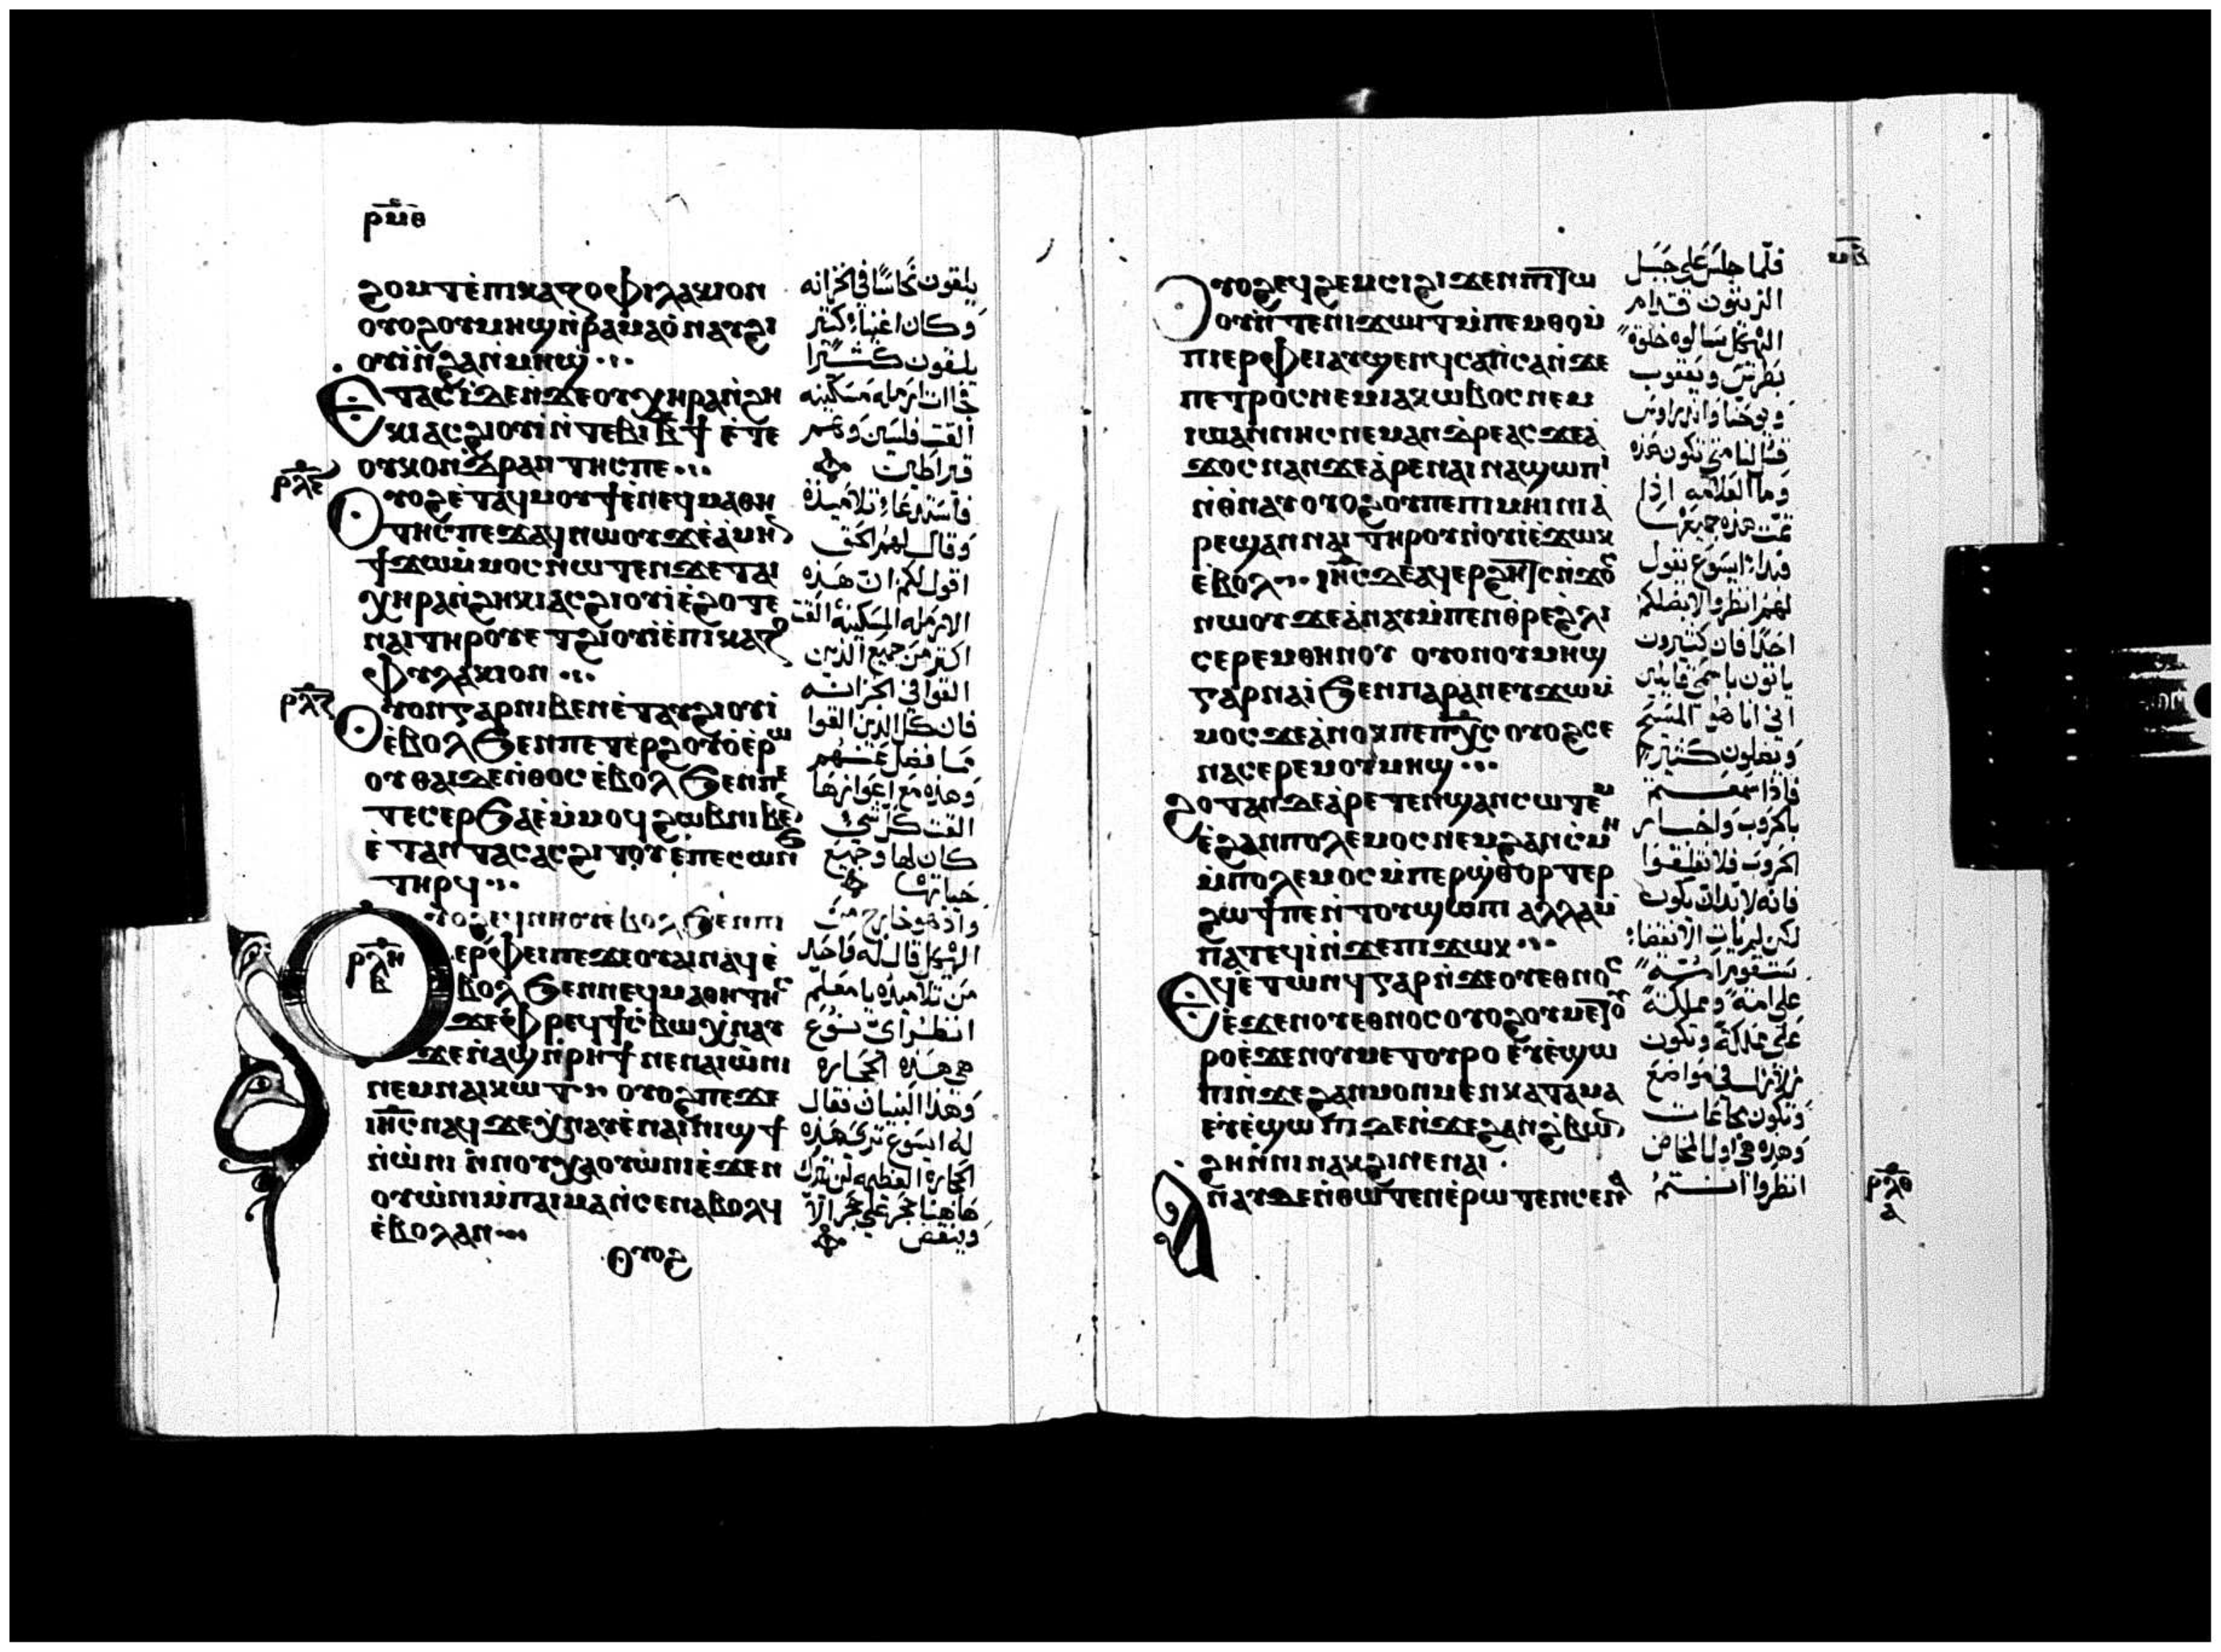 ⲣⲙⲑ
ϩⲟⲙⲧ ⲉ̀ⲡⲓⲅⲁⲍⲟⲫⲓⲗⲁⲕⲓⲟⲛ
ⲟⲩⲟϩ ⲟⲩⲙⲏϣ ⲛ̀ⲣⲁⲙⲁⲟ̀ ⲛⲁⲩϩⲓ
ⲟⲩⲓ̀ ⲛ̀ϩⲁⲛⲙⲏϣ
ⲉⲧⲁⲥⲓ̀ ϫⲉⲛϫⲉ ⲟⲩⲭⲏⲣⲁ ⲛ̀ϩⲏ
ⲕⲓ ⲁⲥϩⲓⲟⲩⲓ̀ ⲛ̀ⲧⲉⲃⲓ ⲃ̅ϯ ⲉ̀ⲧⲉ
ⲟⲩⲕⲟⲛⲇⲣⲁⲛⲧⲏⲥ ⲡⲉ
ⲟⲩⲟϩ ⲉ̀ⲧⲁϥⲙⲟⲩϯ ⲉ̀ⲛⲉϥⲙⲁⲑⲏ
ⲧⲏⲥ ⲡⲉϫⲁϥ ⲛⲱⲟⲩ ϫⲉ ⲁ̀ⲙⲏⲛ
ϯϫⲱ ⲙ̀ⲙⲟⲥ ⲛⲱⲧⲉⲛ ϫⲉ ⲧⲁⲓ
ⲭⲏⲣⲁ ⲛ̀ϩⲏⲕⲓ ⲁⲥϩⲓⲟⲩⲓ̀ ⲉ̀ϩⲟⲧⲉ
ⲛⲁⲓ ⲧⲏⲣⲟⲩ ⲉⲧϩⲓⲟⲩⲓ̀ ⲉ̀ⲡⲓⲅⲁⲍ
ⲫⲩⲗⲁⲕⲓⲟⲛ
ⲟⲩⲟⲛ ⲅⲁⲣ ⲛⲓⲃⲉⲛ ⲉ̀ⲧⲁⲩϩⲓⲟⲩⲓ̀
ⲉ̀ⲃⲟⲗ ϧⲉⲛ ⲡⲉⲧⲉⲣϩⲟⲩⲟ̀ ⲉ̀ⲣⲱ
ⲟⲩ ⲑⲁⲓ ϫⲉ ⲛ̀ⲑⲟⲥ ⲉ̀ⲃⲟⲗ ϧⲉⲛ ⲡⲉ
ⲧⲉⲥⲉⲣϧⲁⲉ̀ ⲙ̀ⲙⲟϥ ϩⲱⲃ ⲛⲓⲃⲉⲛ
ⲉ̀ⲧⲁⲛⲧⲁⲥ ⲁⲥϩⲓⲧⲟⲩ ⲉ̀ⲡⲉⲥⲱⲛϧ
ⲧⲏⲣϥ
ⲟⲩⲟϩ ⲉϥⲛⲏⲟⲩ ⲉ̀ⲃⲟⲗ ϧⲉⲛ ⲡⲓ
ⲉⲣⲫⲉⲓ ⲡⲉϫⲉ ⲟⲩⲁⲓ ⲛⲁϥ ⲉ̀
ⲃⲟⲗ ϧⲉⲛ ⲛⲉϥⲙⲁⲑⲏⲧⲏⲥ
ϫⲉ ⲫⲣⲉϥϯⲥⲃⲱ ⲭ̀ⲛⲁⲩ
ϫⲉ ⲛ̀ⲁϣ ⲛ̀ⲣⲏϯ ⲛⲉ ⲛⲁⲓⲱ̀ⲛⲓ
ⲛⲉⲙ ⲛⲁⲓⲕⲱⲧ ⲟⲩⲟϩ ⲡⲉϫⲉ
ⲓⲏ̅ⲥ̅ ⲛⲁϥ ϫⲉ ⲭ̀ⲛⲁⲩ ⲉ̀ⲛⲁⲓⲛⲓϣϯ
ⲛ̀ⲱ̀ⲛⲓ ⲛ̀ⲛⲟⲩⲭⲁ ⲟⲩⲱ̀ⲛⲓ ⲉ̀ϫⲉⲛ
ⲟⲩⲱ̀ⲛⲓ ⲙ̀ⲡⲁⲓⲙⲁ ⲛ̀ⲥⲉⲛⲁⲃⲟⲗϥ
ⲉ̀ⲃⲟⲗ ⲁⲛ
ⲟⲩⲟϩ
ⲣⲗⲋ
ⲣⲗⲍ
ⲣⲗⲏ
ⲃ
يلقون نحاسًا في الخزانه
وكان اغنياء كثير
يلقون كثيرًا
فجاات ارمله مسكينه
القت فلسين وهم
قيراطين
فاستدعا تلاميذه
وقال لهم الحق
اقول لكم ان هذه
الارمله المسكينه القت
اكثر من جميع الذين
القوا في الخزانه
فان كل الذين القوا
مما فضل عنهم
وهذه مع اعوازها
القت كل شي
كان لها وجميع
حياتها
واذ هو خارج من
الهيكل قال له واحد
من تلاميذه يا معلم
انظر اي نوع
هي هذه الحجاره
وهذا البنيان فقال
له ايسوع ترى هذه
الحجاره العظيمه لن يترك
هاهنا حجر علي حجر الا
وينقض
ⲟⲩⲟϩ ⲉϥϩⲉⲙⲥⲓ ϩⲓϫⲉⲛ ⲡⲓⲧⲱ
ⲟⲩ ⲛ̀ⲧⲉ ⲛⲓϫⲱⲓⲧ ⲙ̀ⲡⲉⲙⲑⲟ ⲙ̀
ⲡⲓⲉⲣⲫⲉⲓ ⲁⲩϣⲉⲛϥ ⲥⲁⲡ̀ⲥⲁ ⲛ̀ϫⲉ
ⲡⲉⲧⲣⲟⲥ ⲛⲉⲙ ⲓⲁⲕⲱⲃⲟⲥ ⲛⲉⲙ
ⲓⲱⲁⲛⲛⲏⲥ ⲛⲉⲙ ⲁⲛⲇⲣⲉⲁⲥ ϫⲉ ⲁ̀
ϫⲟⲥ ⲛⲁⲛ ϫⲉ ⲁ̀ⲣⲉ ⲛⲁⲓ ⲛⲁϣⲱⲡⲓ
ⲛ̀ⲑⲛⲁⲩ ⲟⲩⲟϩ ⲟⲩ ⲡⲉ ⲡⲓⲙⲏⲓⲛⲓ ⲁ̀
ⲣⲉϣⲁⲛ ⲛⲁⲓ ⲧⲏⲣⲟⲩ ⲛⲟⲩⲓ̀ ⲉ̀ϫⲱⲕ
ⲉ̀ⲃⲟⲗ ⲓⲏ̅ⲥ̅ ϫⲉ ⲁϥⲉⲣϩⲏⲧⲥ ⲛ̀ϫⲟⲥ
ⲛⲱⲟⲩ ϫⲉ ⲁ̀ⲛⲁⲩ ⲙ̀ⲡⲉⲛⲑⲣⲉ ϩⲗⲓ
ⲥⲉⲣⲉⲙ ⲑⲏⲛⲟⲩ ⲟⲩⲟⲛ ⲟⲩⲙⲏϣ
ⲅⲁⲣ ⲛⲁⲓ̀ ϧⲉⲛ ⲡⲁⲣⲁⲛ ⲉⲩϫⲱ ⲙ̀
ⲙⲟⲥ ϫⲉ ⲁ̀ⲛⲟⲕ ⲡⲉ ⲡⲭ̅ⲥ̅ ⲟⲩⲟϩ ⲥⲉ
ⲛⲁⲥⲉⲣⲉⲙ ⲟⲩⲙⲏϣ
ϩⲟⲧⲁⲛ ϫⲉ ⲁ̀ⲣⲉⲧⲉⲛϣⲁⲛⲥⲱⲧⲉⲙ
ⲉ̀ϩⲁⲛⲡⲟⲗⲉⲙⲟⲥ ⲛⲉⲙ ϩⲁⲛⲥ̀ⲙⲏ
ⲙ̀ⲡⲟⲗⲉⲙⲟⲥ ⲙ̀ⲡⲉⲣϣ̀ⲑⲟⲣⲧⲉⲣ
ϩⲱϯ ⲡⲉ ⲛ̀ⲧⲟⲩϣⲱⲡⲓ ⲁⲗⲗⲁ ⲙ̀
ⲡⲁⲧⲉϥⲓ̀ ⲛ̀ϫⲉ ⲡⲓϫⲱⲕ
ⲉϥⲉ̀ⲧⲱⲛϥ ⲅⲁⲣ ⲛ̀ϫⲉ ⲟⲩⲉⲑⲛⲟⲥ
ⲉ̀ϫⲉⲛ ⲟⲩⲉⲑⲛⲟⲥ ⲟⲩⲟϩ ⲟⲩⲙⲉⲧⲟⲩ
ⲣⲟ ⲉ̀ϫⲉⲛ ⲟⲩⲙⲉⲧⲟⲩⲣⲟ ⲉⲩⲉ̀ϣⲱ
ⲡⲓ ⲛ̀ϫⲉ ϩⲁⲛⲙⲟⲛⲙⲉⲛ ⲕⲁⲧⲁ ⲙⲁ
ⲉⲩⲉ̀ϣⲱⲡⲓ ϫⲉⲛ̀ϫⲉ ϩⲁⲛϩ̀ⲃⲱⲛ
ϩⲏ ⲛ̀ⲛⲓⲛⲁⲕϩⲓ ⲛⲉ ⲛⲁⲓ
ⲁⲛⲁⲩ ϫⲉ ⲛ̀ⲑⲱⲧⲉⲛ ⲉ̀ⲣⲱⲧⲉⲛ ⲥⲉⲛⲁ
فلما جلس علي جبل
الزيتون قدام
الهيكل سالوه خلوة
بطرس ويعقوب
ويوحنا واندراوس
قل لنا متى تكون هذه
وما العلامه اذا
تمت هذه جميعها
فبدا ايسوع يقول
لهم انظروا لا يضلكم
احدا فان كثيرون
ياتون باسمي قايلين
اني انا هو المسيح
ويضلون كثير
فاذا سمعتم
بالحروب واخبار
الحروب فلا تقلقوا
فانه لا بد ان يكون
لكن لم يات الانقضا
ستقوم امة
علي امة ومملكة
علي مملكة وتكون
زلازل في مواضع
وتكون مجاعات
وهذه هي اول المخاض
انظروا انتم
ⲣⲗⲑ
ⲁ